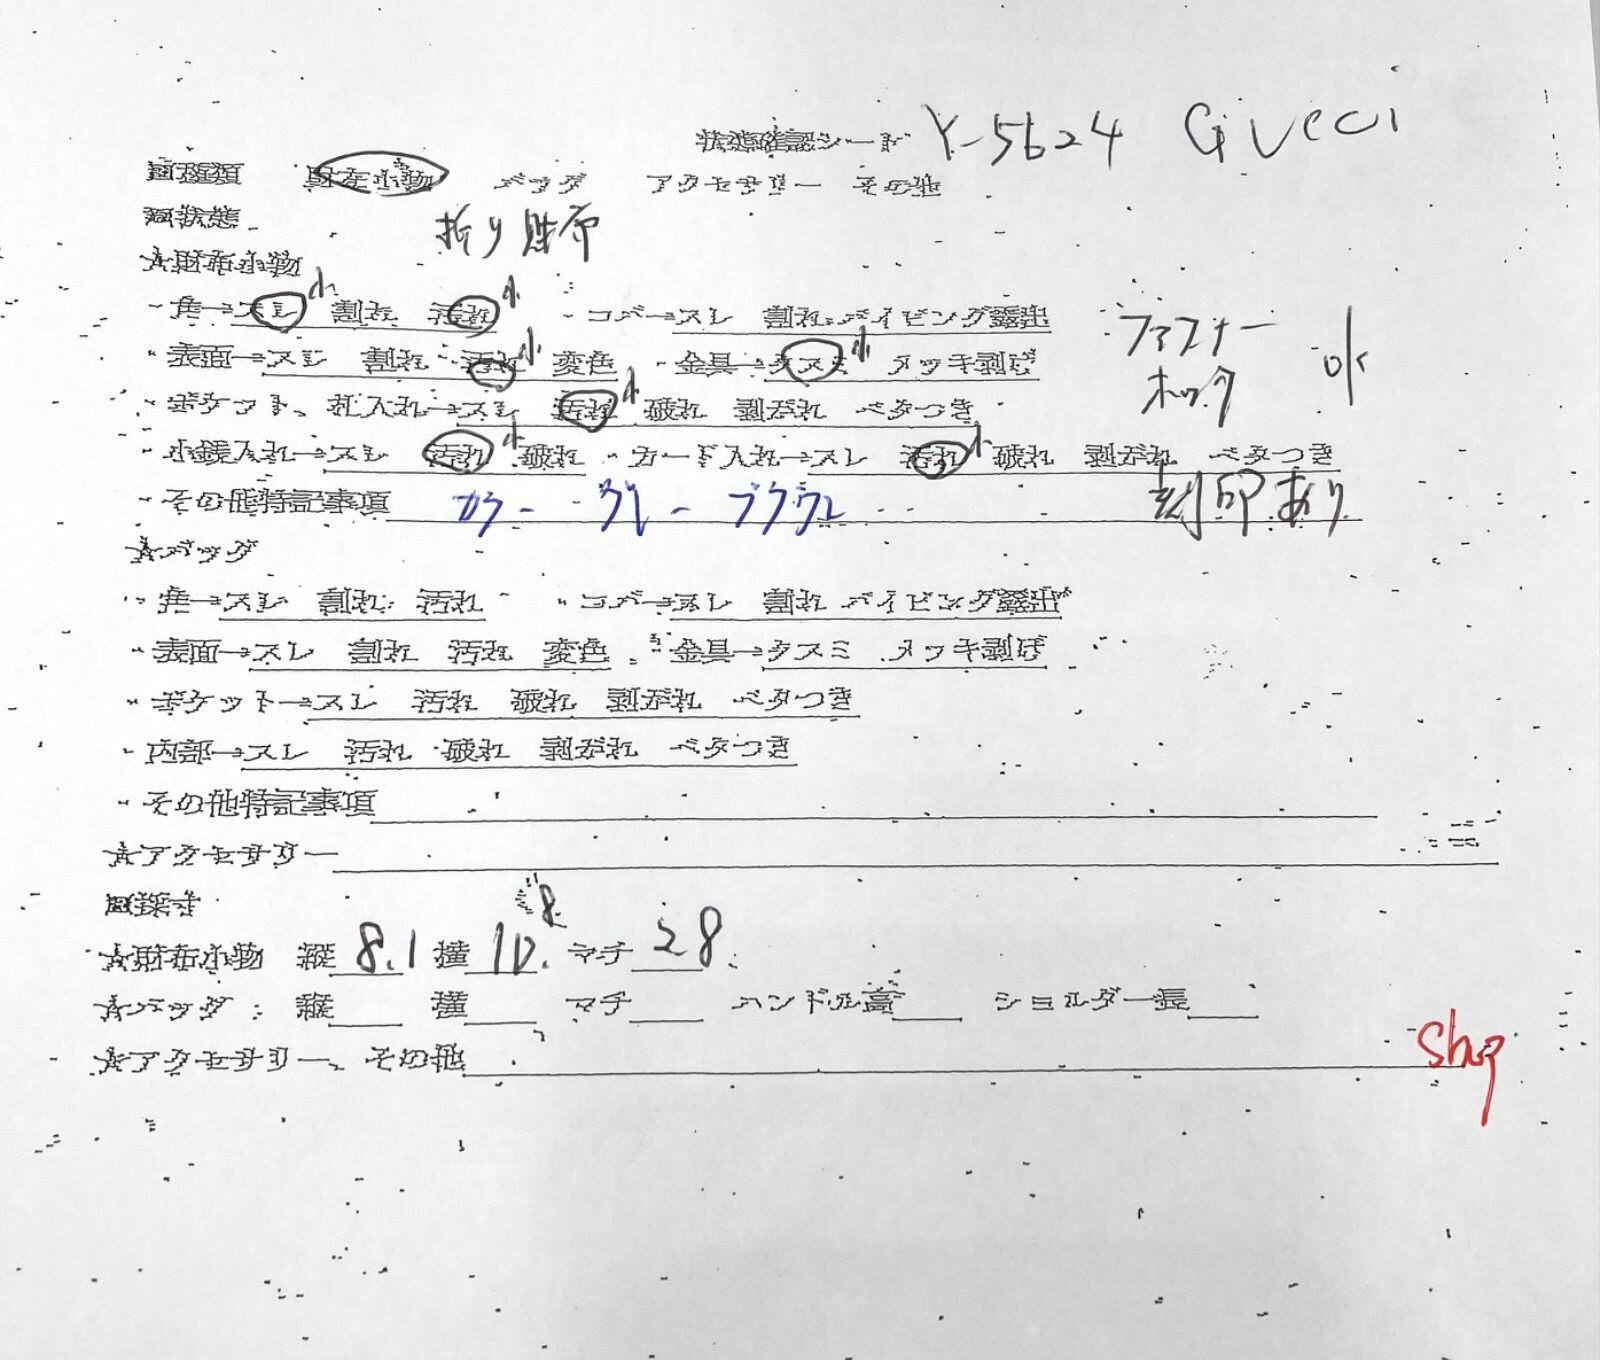 状態確認シート Y-5624 GUCCI
□種類 財布小物 バッグ アクセサリー その他
□状態 折り財布
☆財布小物
・角→スレ小 割れ 汚れ小 ・コバ→スレ 割れ パイピング露出
・表面→スレ 割れ 汚れ小 変色 ・金具→クスミ小 メッキ剥げ ファスナー
・ポケット、札入れ→スレ 汚れ小 破れ 剥がれ ベタつき ホック OK
・小銭入れ→スレ 汚れ小 破れ ・カード入れ→スレ 汚れ小 破れ 剥がれ ベタつき
・その他特記事項 カラー ブラウン 刻印あり
☆バッグ
・角→スレ 割れ 汚れ ・コバ→スレ 割れ パイピング露出
・表面→スレ 割れ 汚れ 変色 ・金具→クスミ メッキ剥げ
・ポケット→スレ 汚れ 破れ 剥がれ ベタつき
・内部→スレ 汚れ 破れ 剥がれ ベタつき
・その他特記事項
☆アクセサリー
□採寸
☆財布小物 縦 8.1 横 10.8 マチ 2.8
☆バッグ 縦 横 マチ ハンドル高 ショルダー長
☆アクセサリー、その他 Shop